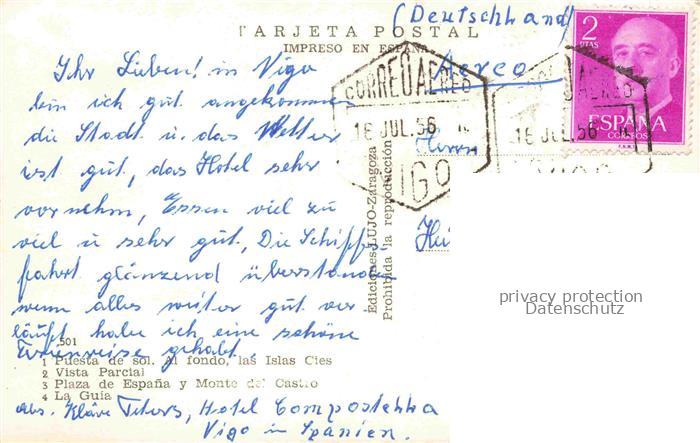 TARJETA POSTAL
IMPRESO EN ESPAÑA
(Deutschland)
Aereo
2
PTAS
ESPAÑA
CORREOS
CORREO AEREO
16 JUL. 56
VIGO
CORREO AEREO
16 JUL. 56
VIGO
Ihr Lieben! in Vigo
bin ich gut angekommen
die Stadt u. das Wetter
ist gut, das Hotel sehr
vornehm, Essen viel zu
viel u sehr gut, Die Schiffs-
fahrt glänzend überstanden
wenn alles weiter gut ver-
läuft habe ich eine schöne
Ferienreise gehabt.
Herrn
Hei
Ediciones LUJO-Zaragoza
Prohibida la reproducción
privacy protection
Datenschutz
501
1 Puesta de sol. Al fondo, las Islas Cies
2 Vista Parcial
3 Plaza de España y Monte del Castro
4 La Guía
Abs. Kläre Hotel Compostehha
Vigo in Spanien.